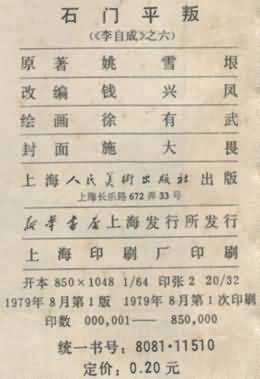 石门平叛
(《李自成》之六)
原著 姚雪垠
改编 钱兴凤
绘画 徐有武
封面 施大畏
上海人民美术出版社出版
上海长乐路672弄33号
新华书店上海发行所发行
上海印刷厂印刷
开本 850×1048 1/64 印张 2 20/32
1979年8月第1版 1979年8月第1次印刷
印数 000,001—850,000
统一书号：8081·11510
定价：0.20 元